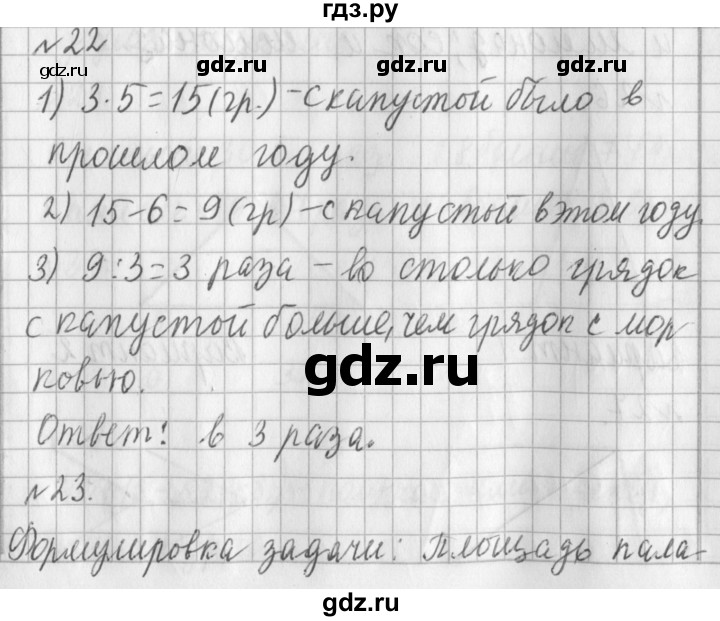 гдз.ру
№22
gdz.ru gdz.ru gdz.ru
1) 3·5=15(гр.) – с капустой было в
прошлом году.
2) 15-6=9(гр) – с капустый в этом году.
gdz.ru gdz.ru
3) 9:3=3 раза – во столько грядок
с капустой больше, чем грядок с мор
gdz.ru
ковью.
Ответ: в 3 раза.
gdz.ru gdz.ru
№23.
Формулировка задачи: Площадь пала-
gdz.ru